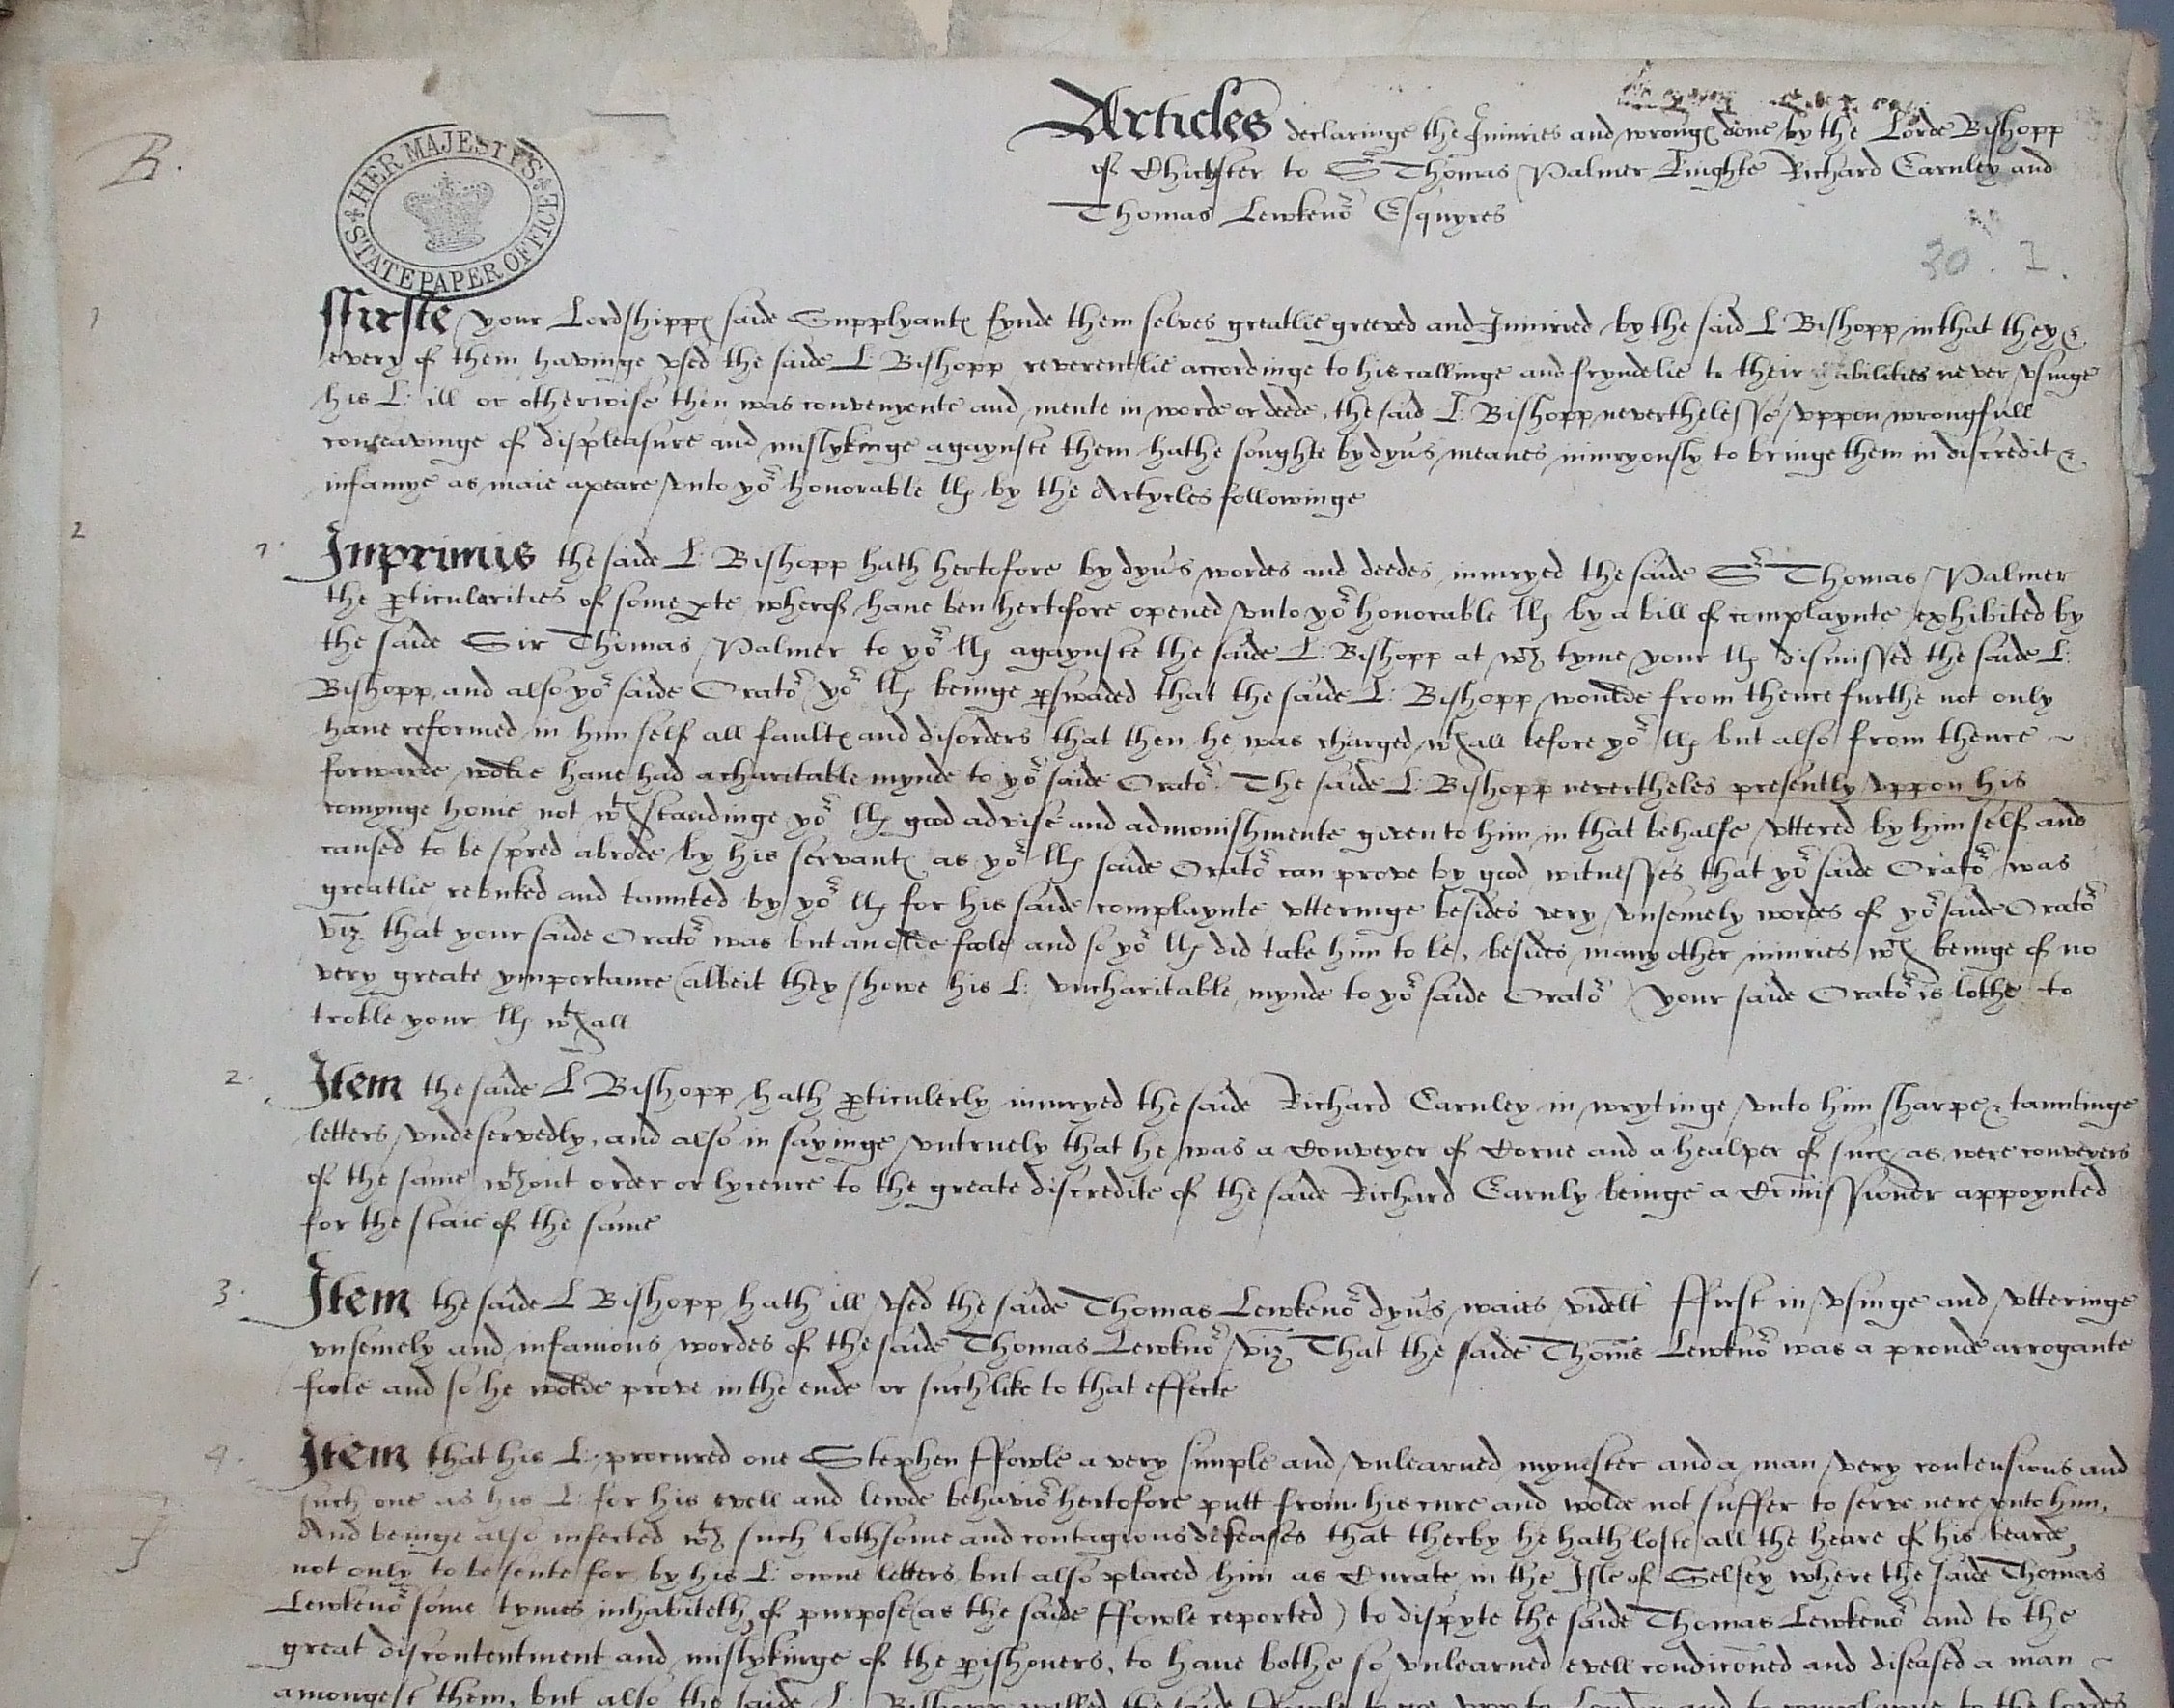 B.
HER MAJESTY'S STATE PAPER OFFICE
Articles declaringe the Iniuries and wronges done by the Lorde Bishopp
of Chichester to Sr Thomas Palmer Knighte Richard Earnley and
Thomas Lewkenor Esquyres
30. 1.
1
ffirste your Lordshipps saide Supplyantes fynde them selves greatlie greeved and Iniuried by the said L Bishopp in that they &
every of them havinge vsed the saide L: Bishopp reverentlie accordinge to his callinge and fryndelie to their abilities never vsinge
his L: ill or otherwise then was convenyente and mente in worde or deede, the said L: Bishopp neverthelesse vppon wrongfull
conseavinge of displeasure and mislykinge agaynste them hathe soughte by dyu's meanes iniuryously to bringe them in discredit &
infamye as maie apeare vnto yor honorable llp by the Artycles followinge
2
1. Imprimis the saide L: Bishopp hath hertofore by dyu's wordes and deedes iniuryed the saide Sr Thomas Palmer
the pticularities of some pte wherof haue ben hertofore opened vnto yor honorable llp by a bill of complaynte exhibited by
the saide Sir Thomas Palmer to yor llp agaynste the saide L: Bishopp at wch tyme your llp dismissed the saide L:
Bishopp, and also yor saide Orator yor llp beinge pswaded that the saide L: Bishopp woulde from thence furthe not only
haue reformed in him self all faultes and disorders that then he was charged wthall before yor llp but also from thence ~
forwarde wolde haue had a charitable mynde to yor saide Orator. The saide L: Bishopp nevertheles presently vppon his
comynge home not wthstandinge yor llp good advise and admonishmente given to him in that behalfe vttered by him self and
caused to be spred abrode by his servantes as yor llp saide Orator can prove by good witnesses that yor saide Orator was
greatlie rebuked and taunted by yor llp for his saide complaynte vtteringe besides very vnsemely wordes of yor saide Orator
viz. that your saide Orator was but an olde foole and so yor llp did take him to be, besides many other iniuries wch beinge of no
very greate ymportance (albeit they showe his L: vncharitable mynde to yor saide Orator) your saide Orator is lothe to
troble your llp wthall
2. Item the saide L Bishopp hath pticulerly iniuryed the saide Richard Earnley in wrytinge vnto him sharpe & tauntinge
letters vndeservedly, and also in sayinge vntruely that he was a Conveyer of Corne and a healper of such as were conveyers
of the same wthout order or lycence to the greate discredite of the saide Richard Earnly beinge a Comissioner appoynted
for the staie of the same
3. Item the saide L Bishopp hath ill vsed the saide Thomas Lewkenor dyu's waies videlt ffirst in vsinge and vtteringe
vnsemely and infamous wordes of the saide Thomas Lewknor, viz. That the saide Thomas Lewknor was a proude arrogante
foole and so he wolde prove in the ende or such like to that effecte
4. Item that his L: procured one Stephen ffowle a very simple and vnlearned mynister and a man very contensious and
such one as his L: for his evell and lewde behavior hertofore putt from his cure and wolde not suffer to serve nere vnto him,
And beinge also infected wth such lothsome and contagious deseases that therby he hath loste all the heare of his bearde,
not only to be sente for by his L: owne letters but also placed him as Curate in the Isle of Selsey where the saide Thomas
Lewkenor some tymes inhabiteth, of purpose (as the saide ffowle reported) to dispyte the saide Thomas Lewkenor and to the
great discontentment and mislykinge of the pishoners, to haue bothe so vnlearned evell condicioned and diseased a man ~
amongest them, but also the saide L: Bishopp willed the said ffowle to